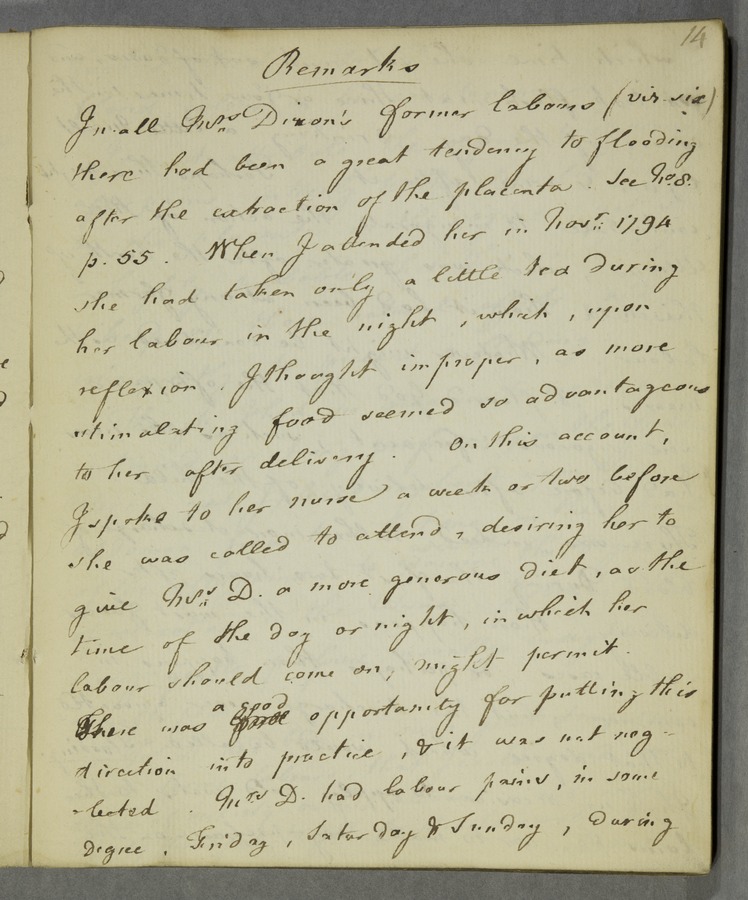 14
Remarks
In all Mrs Dixon's former labours (viz six)
there had been a great tendency to flooding
after the extraction of the placenta. See No. 8.
p. 55. When I attended her in Novr. 1794
she had taken only a little tea during
her labour in the night, which, upon
reflexion, I thought improper, as more
stimulating food seemed so advantageous
to her after delivery. On this account,
I spoke to her nurse a week or two before
she was called to attend, desiring her to
give Mrs D. a more generous diet, as the
time of the day or night, in which her
labour should come on, might permit.
There was a good opportunity for putting this
direction into practice, & it was not neg-
-lected. Mrs D. had labour pains, in some
degree, Friday, Saturday & Sunday, during